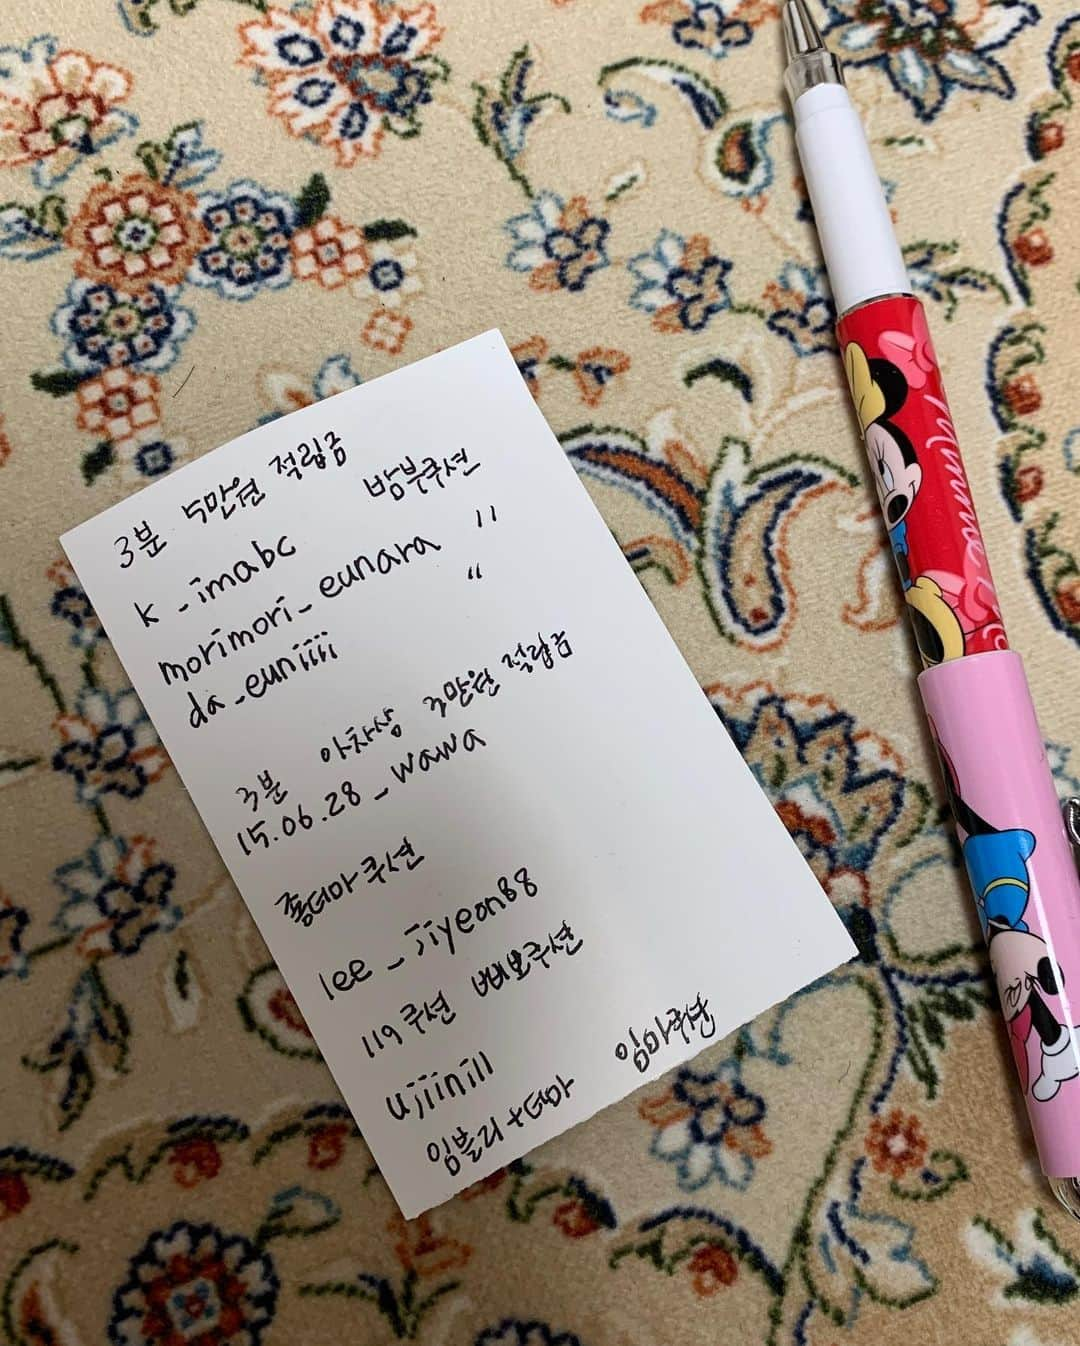 3분 5만원 적립금
k_imabc 밤부쿠션
morimori_eunara "
da_euniiii "
3분 아차상 3만원 적립금
15.06.28_wawa
좀더마쿠션
lee_jiyeon88
119쿠션 빼보쿠션
ujiinill
임블리+더마 임마쿠션
Minnie